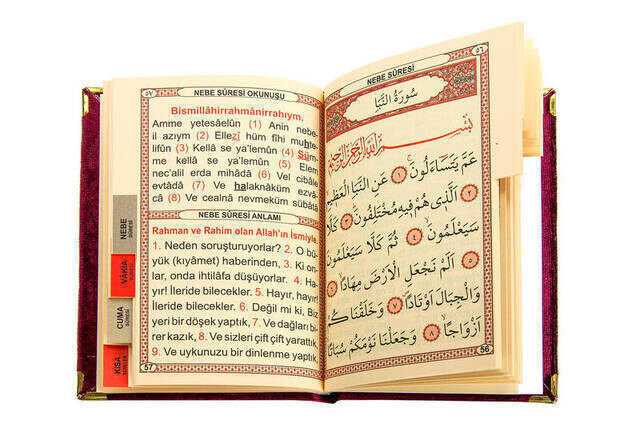 NEBE SÛRESİ
٥٦
سُورَةُ النَّبَأِ
بِسْمِ اللّٰهِ الرَّحْمٰنِ الرَّحِيمِ
عَمَّ يَتَسَاءَلُونَ ﴿١﴾ عَنِ النَّبَإِ الْعَظِيمِ
﴿٢﴾ اَلَّذِي هُمْ فِيهِ مُخْتَلِفُونَ ﴿٣﴾ كَلَّا
سَيَعْلَمُونَ ﴿٤﴾ ثُمَّ كَلَّا سَيَعْلَمُونَ
﴿٥﴾ اَلَمْ نَجْعَلِ الْاَرْضَ مِهَادًا ﴿٦﴾
وَالْجِبَالَ اَوْتَادًا ﴿٧﴾ وَخَلَقْنَاكُمْ
اَزْوَاجًا ﴿٨﴾ وَجَعَلْنَا نَوْمَكُمْ سُبَاتًا
56
٥٧
NEBE SÛRESİ OKUNUŞU
Bismillâhirrahmânirrahıym.
Amme yetesaêlûn (1) Anin nebe-
il azıym (2) Ellezî hüm fîhi muhte-
lifûn (3) Kellâ se ya'lemûn (4) Süm-
me kellâ se ya'lemûn (5) Elem
nec'alil erda mihâdâ (6) Vel cibâle
evtâdâ (7) Ve halaknâküm ezvâ-
câ (8) Ve cealnâ nevmeküm sübâtâ
NEBE SÛRESİ ANLAMI
Rahman ve Rahim olan Allah'ın İsmiyle.
1. Neden soruşturuyorlar? 2. O bü-
yük (kıyâmet) haberinden, 3. Ki on-
lar, onda ihtilâfa düşüyorlar. 4. Ha-
yır! İleride bilecekler. 5. Hayır, hayır!
İleride bilecekler. 6. Değil mi ki, Biz
yeri bir döşek yaptık, 7. Ve dağları bi-
rer kazık, 8. Ve sizleri çift çift yarattık,
9. Ve uykunuzu bir dinlenme yaptık,
57
NEBE
SÛRESİ
VÂKIA
SÛRESİ
CUMA
SÛRESİ
KISA
SÛRELER